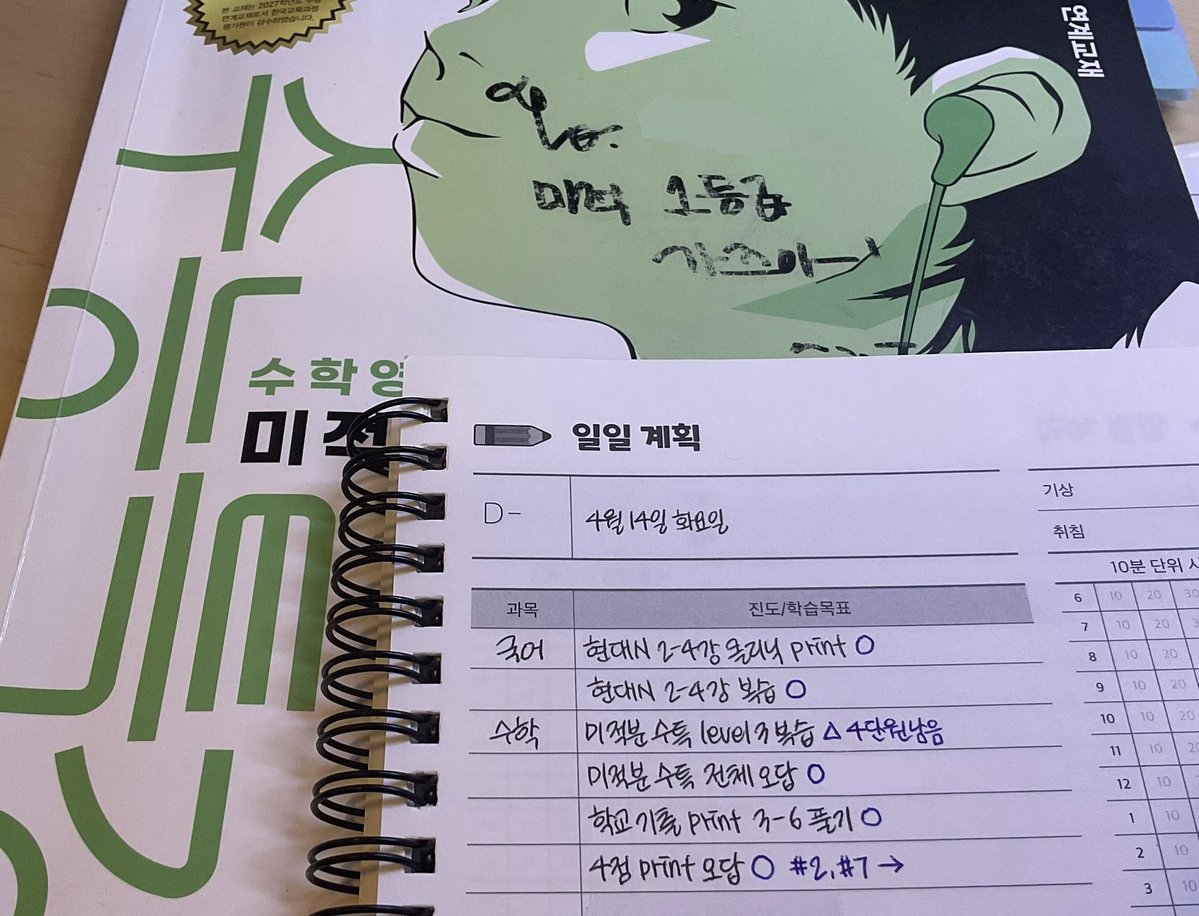 본 교재는 2027학년도 수능
연계교재로서 한국교육과정
평가원이 감수하였습니다.
연계교재
수능특강
수학영
미적
미적 1등급
가즈아~!
일일 계획
D-
4월 14일 화요일
기상
취침
10분 단위
과목 진도/학습목표
국어 현대N 2-4강 클리닉 print O
현대N 2-4강 복습 O
수학 미적분 수특 level 3 복습 △ 4단원남음
미적분 수특 전체 오답 O
학교 기출 print 3-6 풀기 O
4점 print 오답 O #2, #7 →
6 10 20 30
7 10 20
8 10 20
9 10 20
10 10 20
11 10 20
12 10
1 10
2 10
3 10